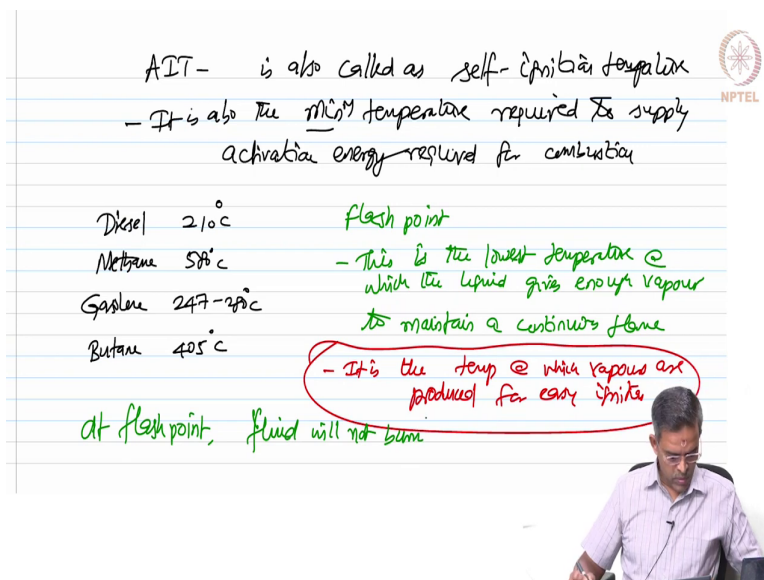 AIT- is also called as self-ignition temperature
NPTEL
- It is also the minm temperature required to supply
activation energy required for combustion
Diesel 210°C
Methane 580°C
Gasolene 247-280°C
Butane 405°C
flash point
- This is the lowest temperature @
which the liquid gives enough vapour
to maintain a continuous flame
- It is the temp @ which vapours are
produced for easy
at flash point, fluid will not burn